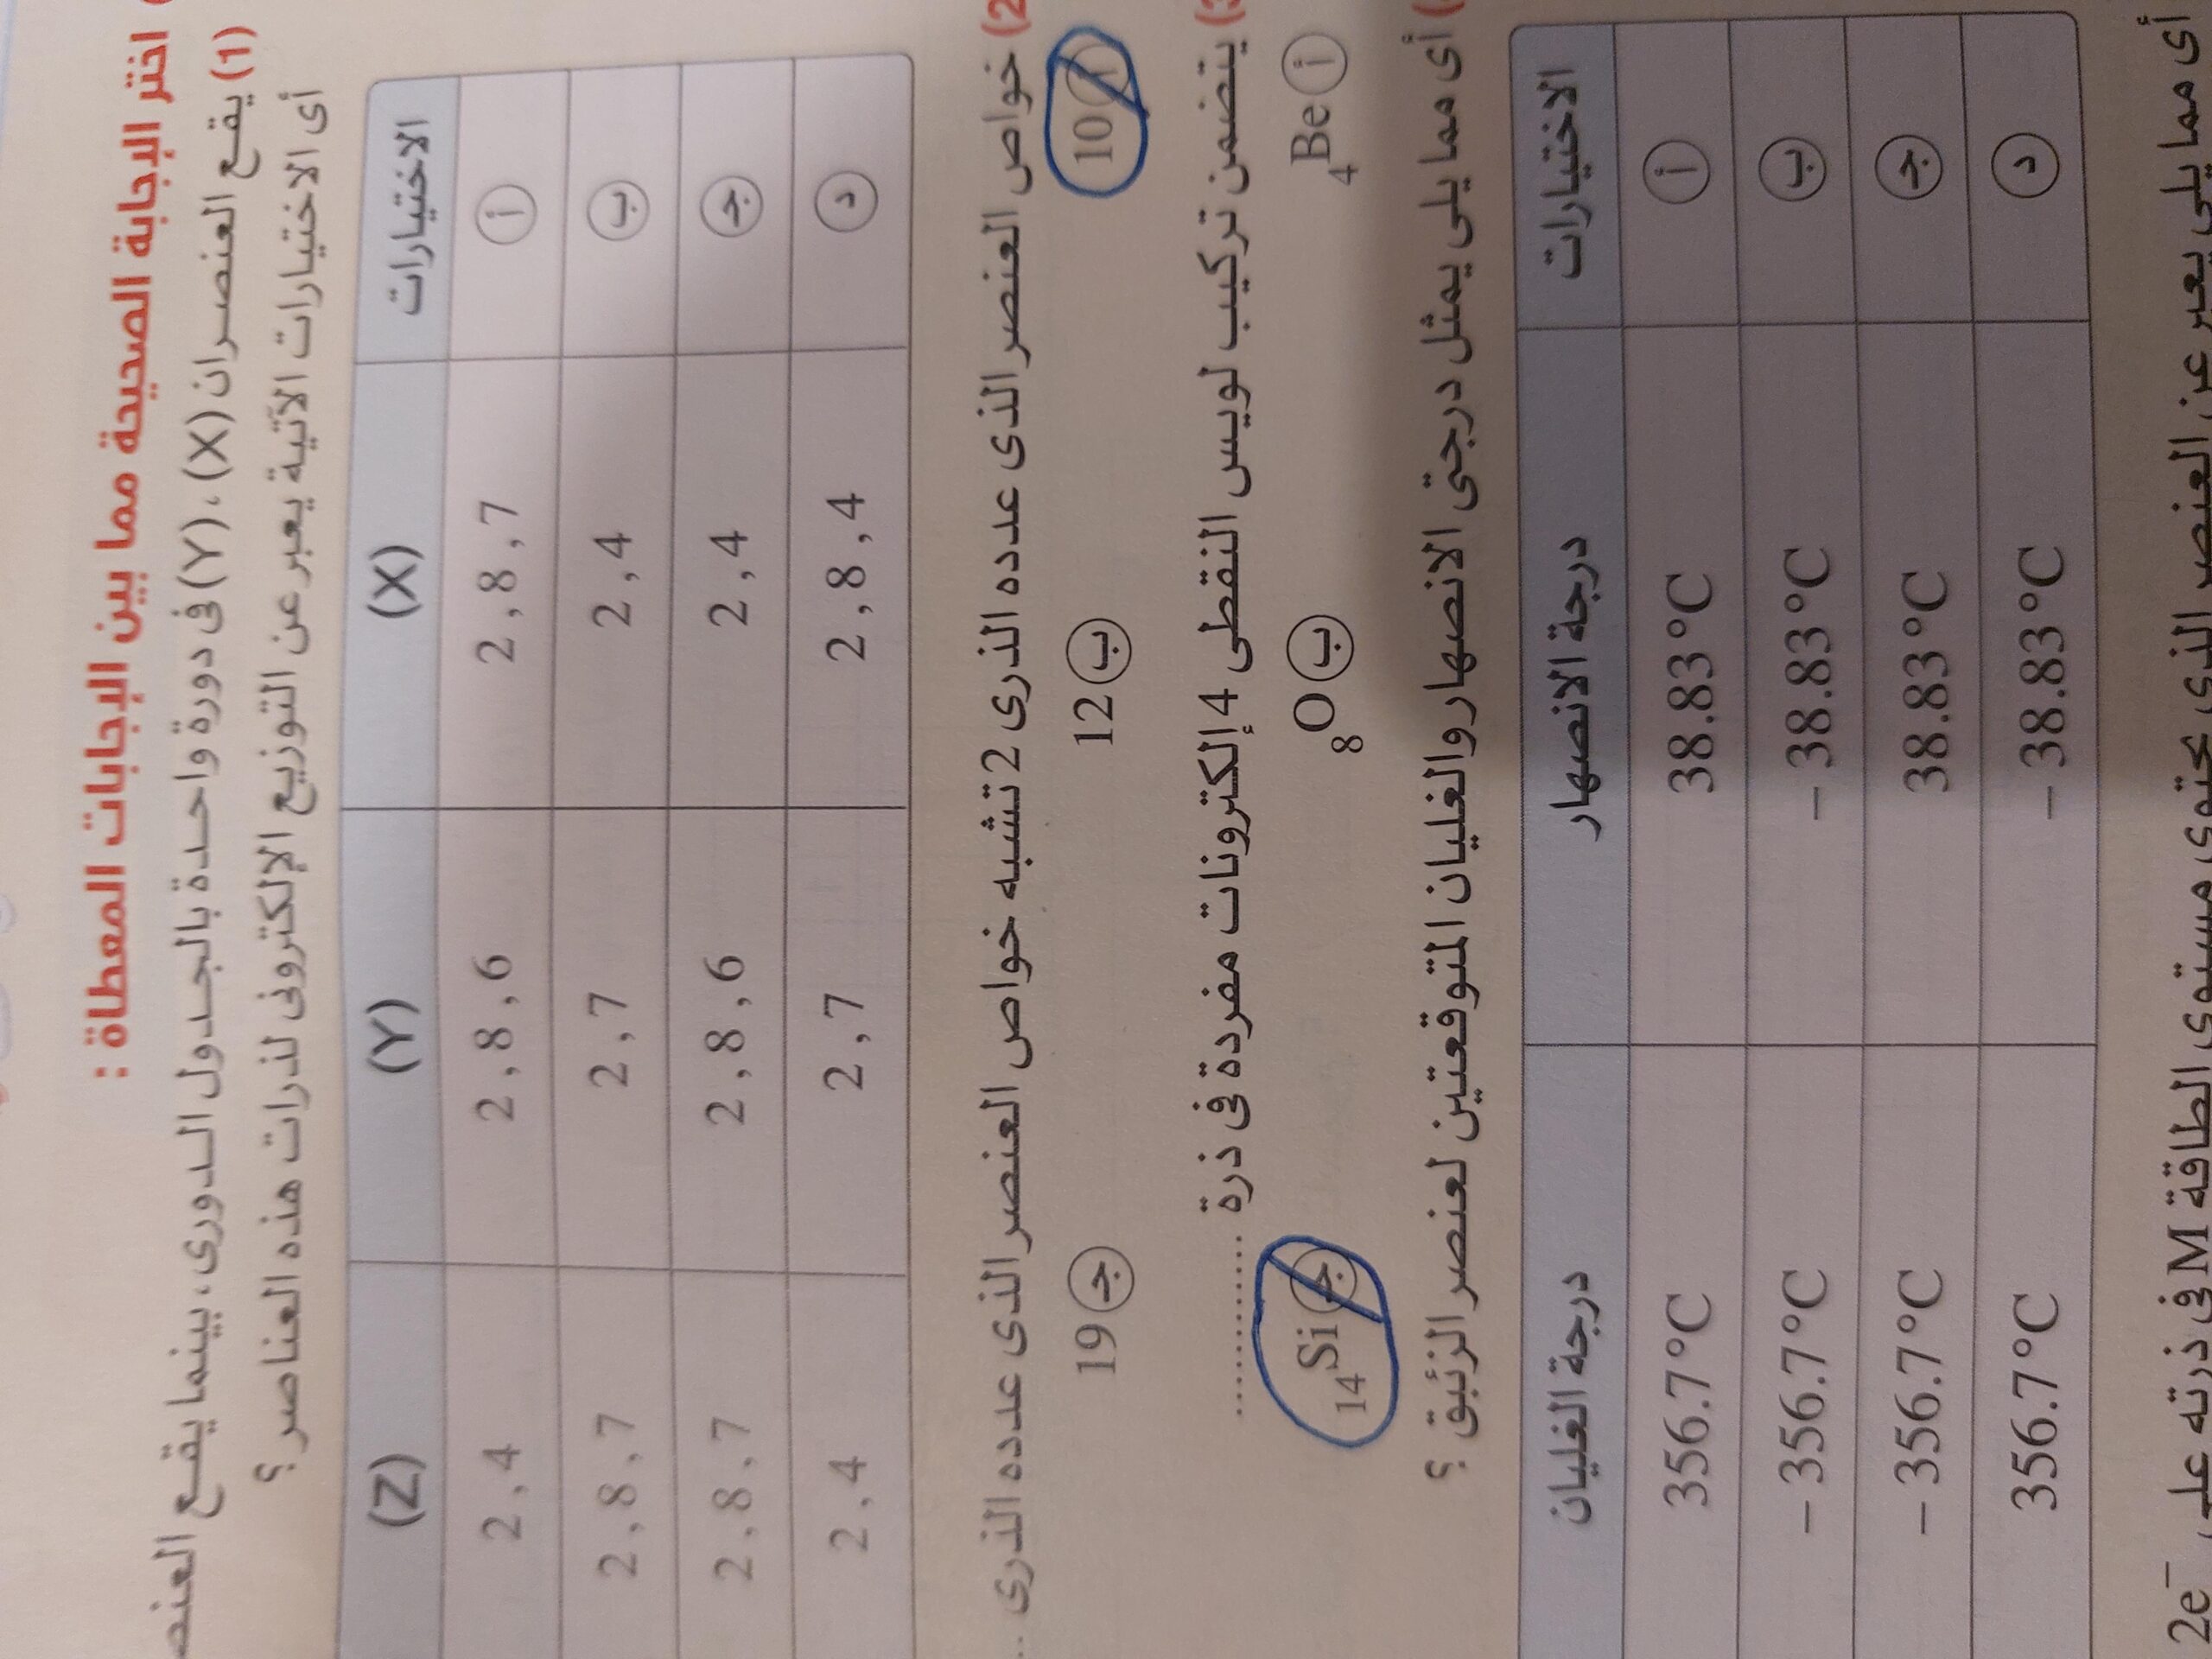 اختر الإجابة الصحيحة مما بين الإجابات المعطاة :
(1) يقع العنصران (X)، (Y) فى دورة واحدة بالجدول الدورى، بينما يقع
أى الاختيارات الآتية يعبر عن التوزيع الإلكترونى لذرات هذه العناصر ؟
الاختيارات (X) (Y) (Z)
أ 2 , 8 , 7 2 , 8 , 6 2 , 4
ب 2 , 4 2 , 7 2 , 8 , 7
ج 2 , 4 2 , 8 , 6 2 , 8 , 7
د 2 , 8 , 4 2 , 7 2 , 4
(2) خواص العنصر الذى عدده الذرى 2 تشبه خواص العنصر الذى عدده الذرى ...
أ 10 ب 12 ج 19
يتضمن تركيب لويس النقطى 4 إلكترونات مفردة فى ذرة ..............
أ ₄Be ب ₈O ج ₁₄Si
أى مما يلى يمثل درجتى الانصهار والغليان المتوقعتين لعنصر الزئبق ؟
الاختيارات درجة الانصهار درجة الغليان
أ 38.83°C 356.7°C
ب – 38.83°C – 356.7°C
ج 38.83°C – 356.7°C
د – 38.83°C 356.7°C
أى مما يلى يعبر عن العنصر الذى يحتوى مستوى الطاقة M فى ذرته على 2e⁻